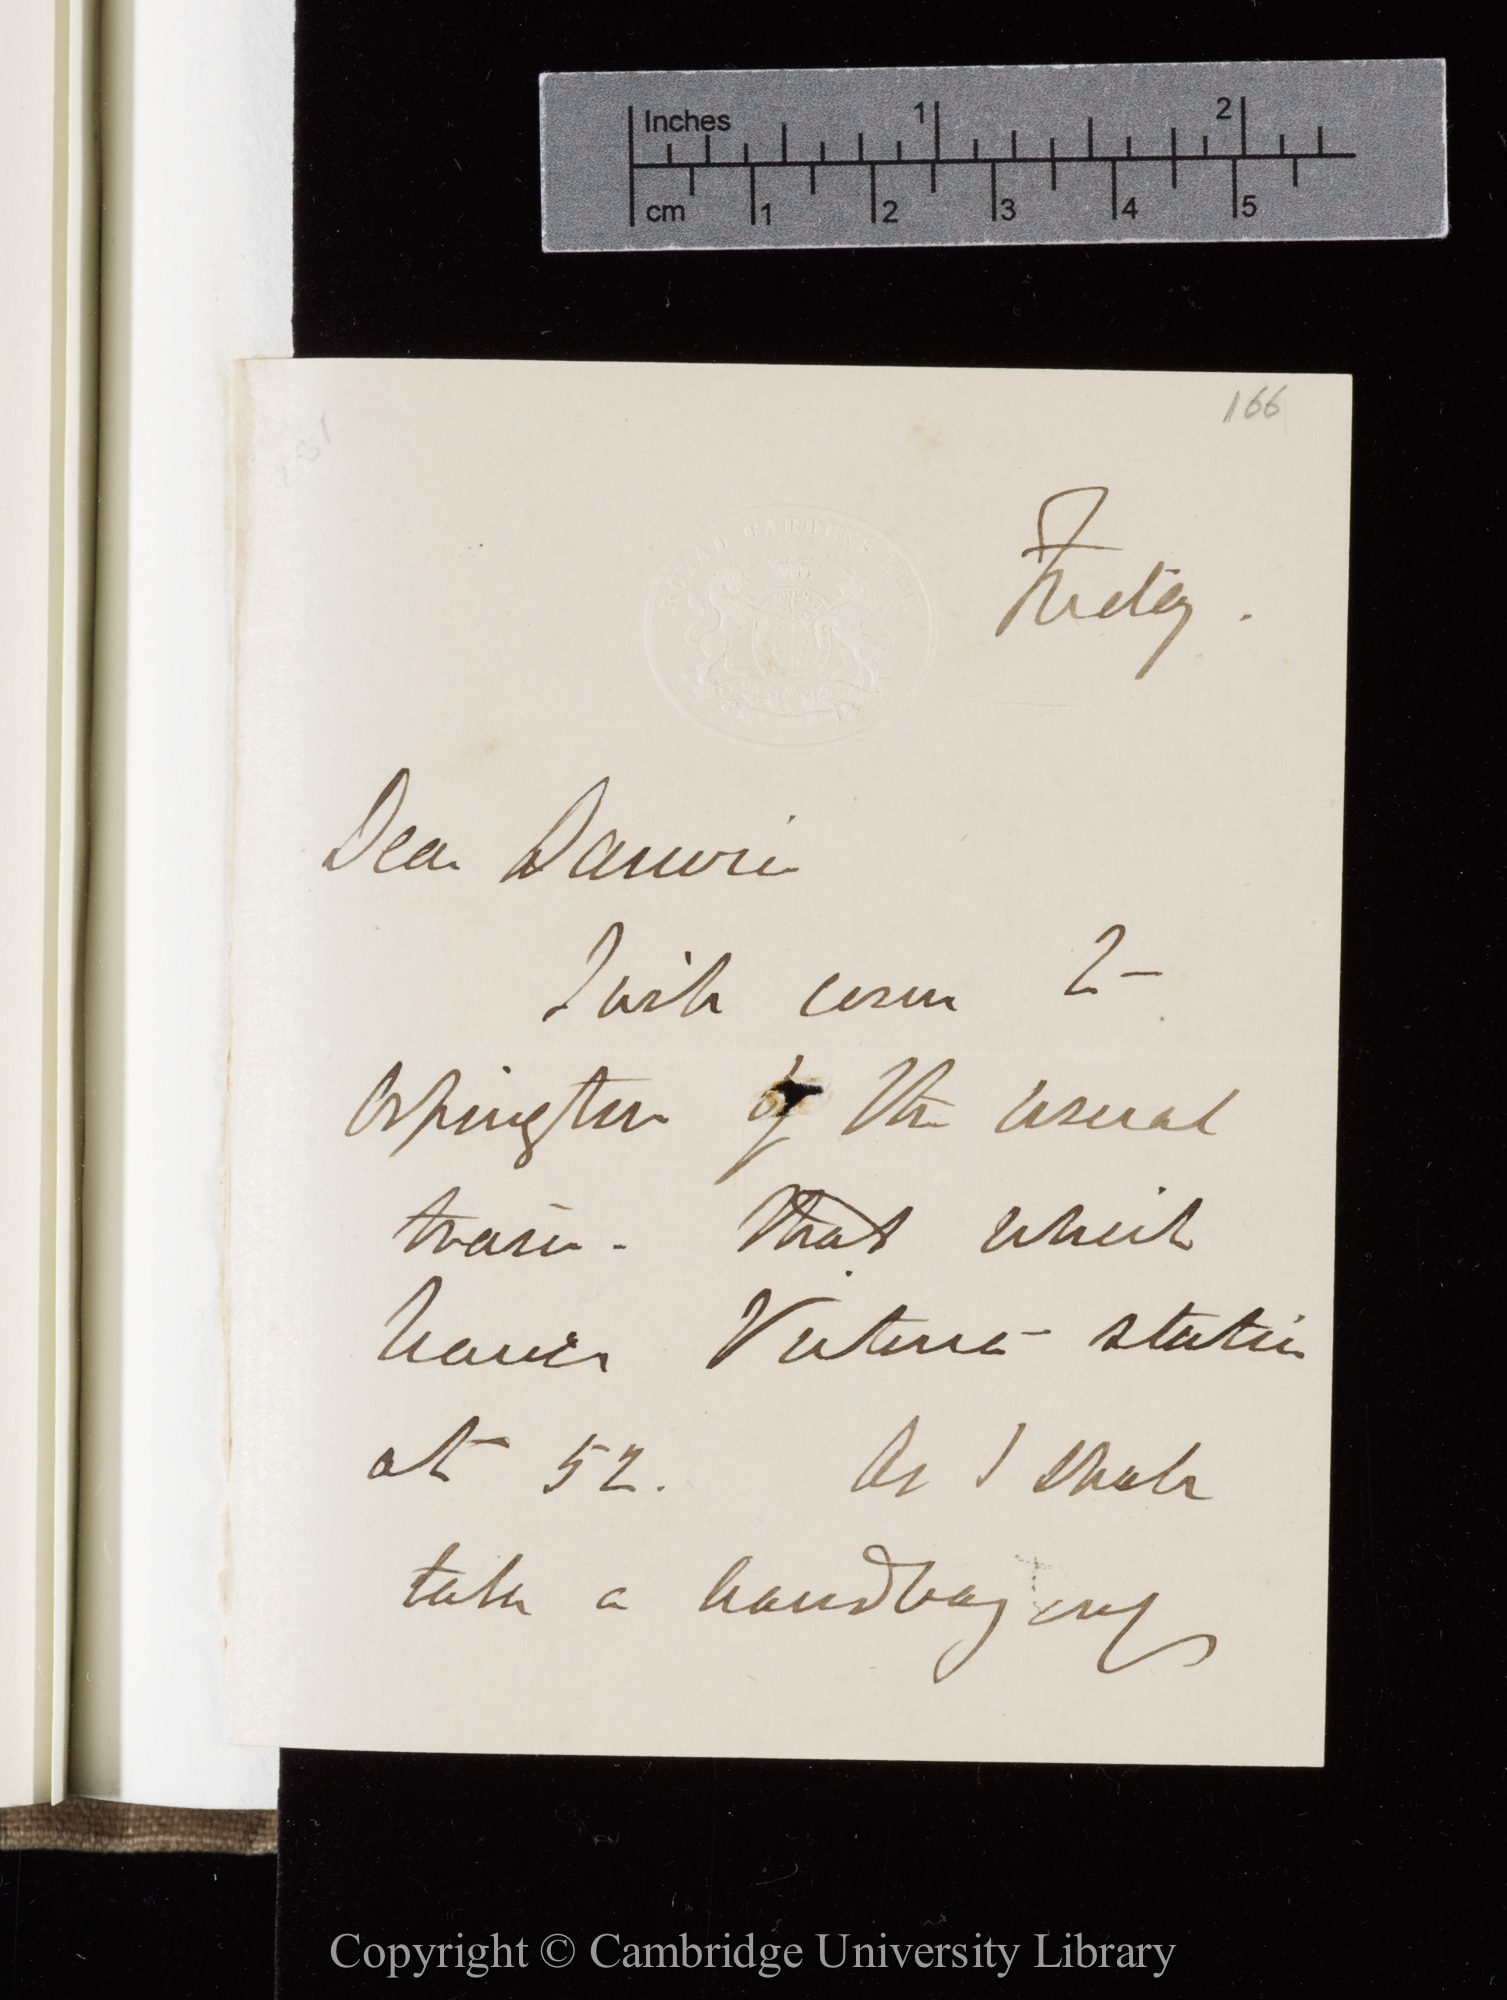 Inches 1 2
cm 1 2 3 4 5
166
ROYAL GARDENS KEW
Friday.
Dear Darwin
I will come to
Orpington by the usual
train. that which
leaves Victoria station
at 5.2. As I shall
take a handbag only
Copyright © Cambridge University Library